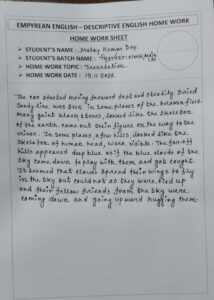 EMPYREAN ENGLISH – DESCRIPTIVE ENGLISH HOME WORK
HOME WORK SHEET
➢ STUDENT'S NAME : Malay Kumar Dey.
➢ STUDENT'S BATCH NAME :
➢ HOME WORK TOPIC : Translation.
➢ HOME WORK DATE : 13.11.2022.
The car started moving forward fast and steadily. Dried
Sandy line was seen in some places of the broken field.
Many giant black stones, looked like the skeleton
of the earth came out their figure on the way to the
river. In some places, a few hills, looked like the
skeleton of human head, were visible. The far-off
hills appeared deep blue as if the blue clouds of the
sky came down to play with them, and got caught.
It seemed that clouds spread their wings to fly
in the sky but could not as they were tied up
and their fellow friends from the sky were
coming down and going upward hugging them.